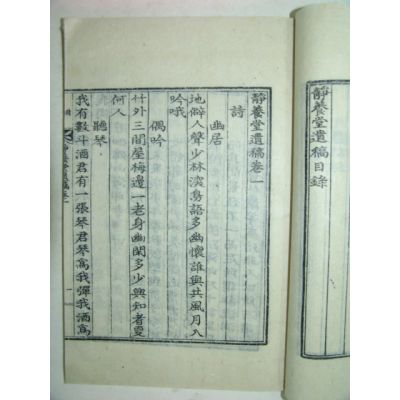 靜養堂遺稿目錄
靜養堂遺稿卷一
詩
幽居
地僻人聲少林深鳥語多幽懷誰與共風月入
吟哦
偶吟
竹外三間屋梅邊一老身幽閑多少興知者更
何人
聽琴
我有數斗酒君有一張琴君琴爲我彈我酒爲